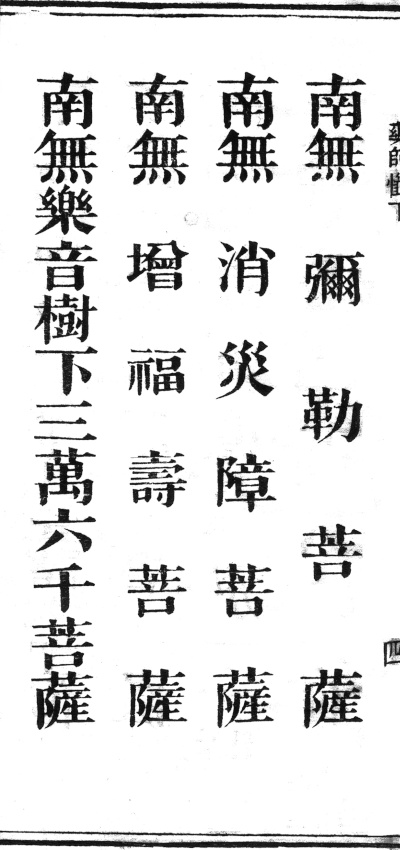 藥師懺下
南無彌勒菩薩
南無消災障菩薩
南無增福壽菩薩
南無樂音樹下三萬六千菩薩